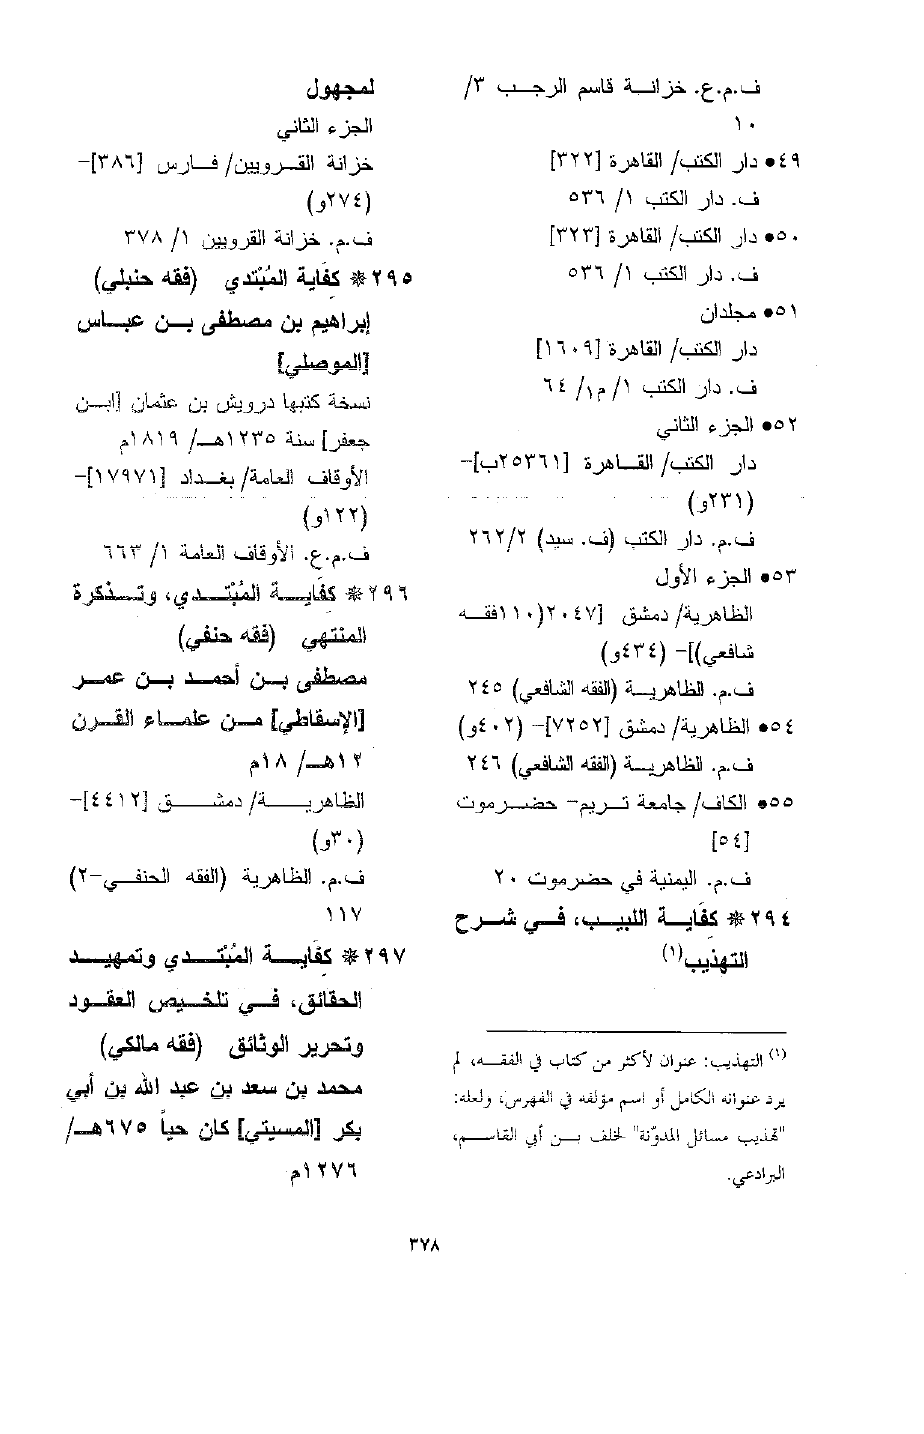 ف.م.ع. خزانــة قاسم الرجــب ٣/
١٠
٤٩• دار الكتب/ القاهرة [٣٢٢]
ف. دار الكتب ١/ ٥٣٦
٥٠• دار الكتب/ القاهرة [٣٢٣]
ف. دار الكتب ١/ ٥٣٦
٥١• مجلدان
دار الكتب/ القاهرة [١٦٠٩]
ف. دار الكتب ١/ م١/ ٦٤
٥٢• الجزء الثاني
دار الكتب/ القــاهرة [٢٥٣٦١ب]-
(٢٣١و)
ف.م. دار الكتب (ف. سيد) ٢/ ٢٦٢
٥٣• الجزء الأول
الظاهرية/ دمشق [٢٠٤٧(١١٠فقــه
شافعي)]- (٤٣٤و)
ف.م. الظاهريــة (الفقه الشافعي) ٢٤٥
٥٤• الظاهرية/ دمشق [٧٢٥٢]- (٤٠٢و)
ف.م. الظاهريــة (الفقه الشافعي) ٢٤٦
٥٥• الكاف/ جامعة تــريم- حضــرموت
[٥٤]
ف.م. اليمنية في حضرموت ٢٠
٢٩٤* كفَايــة اللبيــب، فــي شــرح
التهذِيب(١)
لمجهول
الجزء الثاني
خزانة القــرويين/ فــارس [٣٨٦]-
(٢٧٤و)
ف.م. خزانة القرويين ١/ ٣٧٨
٢٩٥* كفَاية المُبْتدي (فقه حنبلي)
إبراهيم بن مصطفى بــن عبــاس
[الموصلي]
نسخة كتبها درويش بن عثمان [ابــن
جعفر] سنة ١٢٣٥هــ/ ١٨١٩م
الأوقاف العامة/ بغــداد [١٧٩٧١]-
(١٢٢و)
ف.م.ع. الأوقاف العامة ١/ ٦٦٣
٢٩٦* كفَايــة المُبْتــدي، وتــذكرة
المنتهي (فقه حنفي)
مصطفى بــن أحمــد بــن عمــر
[الإسقاطي] مــن علمــاء القــرن
١٢هــ/ ١٨م
الظاهريــــة/ دمشــــق [٤٤١٢]-
(٣٠و)
ف.م. الظاهرية (الفقه الحنفــي-٢)
١١٧
٢٩٧* كفَايــة المُبْتــدي وتمهيــد
الحقائق، فــي تلخــيص العقــود
وتحرير الوثائق (فقه مالكي)
محمد بن سعد بن عبد الله بن أبي
بكر [المسيتي] كان حياً ٦٧٥هــ/
١٢٧٦م
(١) التهذيب: عنوان لأكثر من كتاب في الفقــه، لم
يرد عنوانه الكامل أو اسم مؤلفه في الفهرس، ولعله:
"تهذيب مسائل المدوّنة" لخلف بــن أبي القاســم،
البرادعي.
٣٧٨